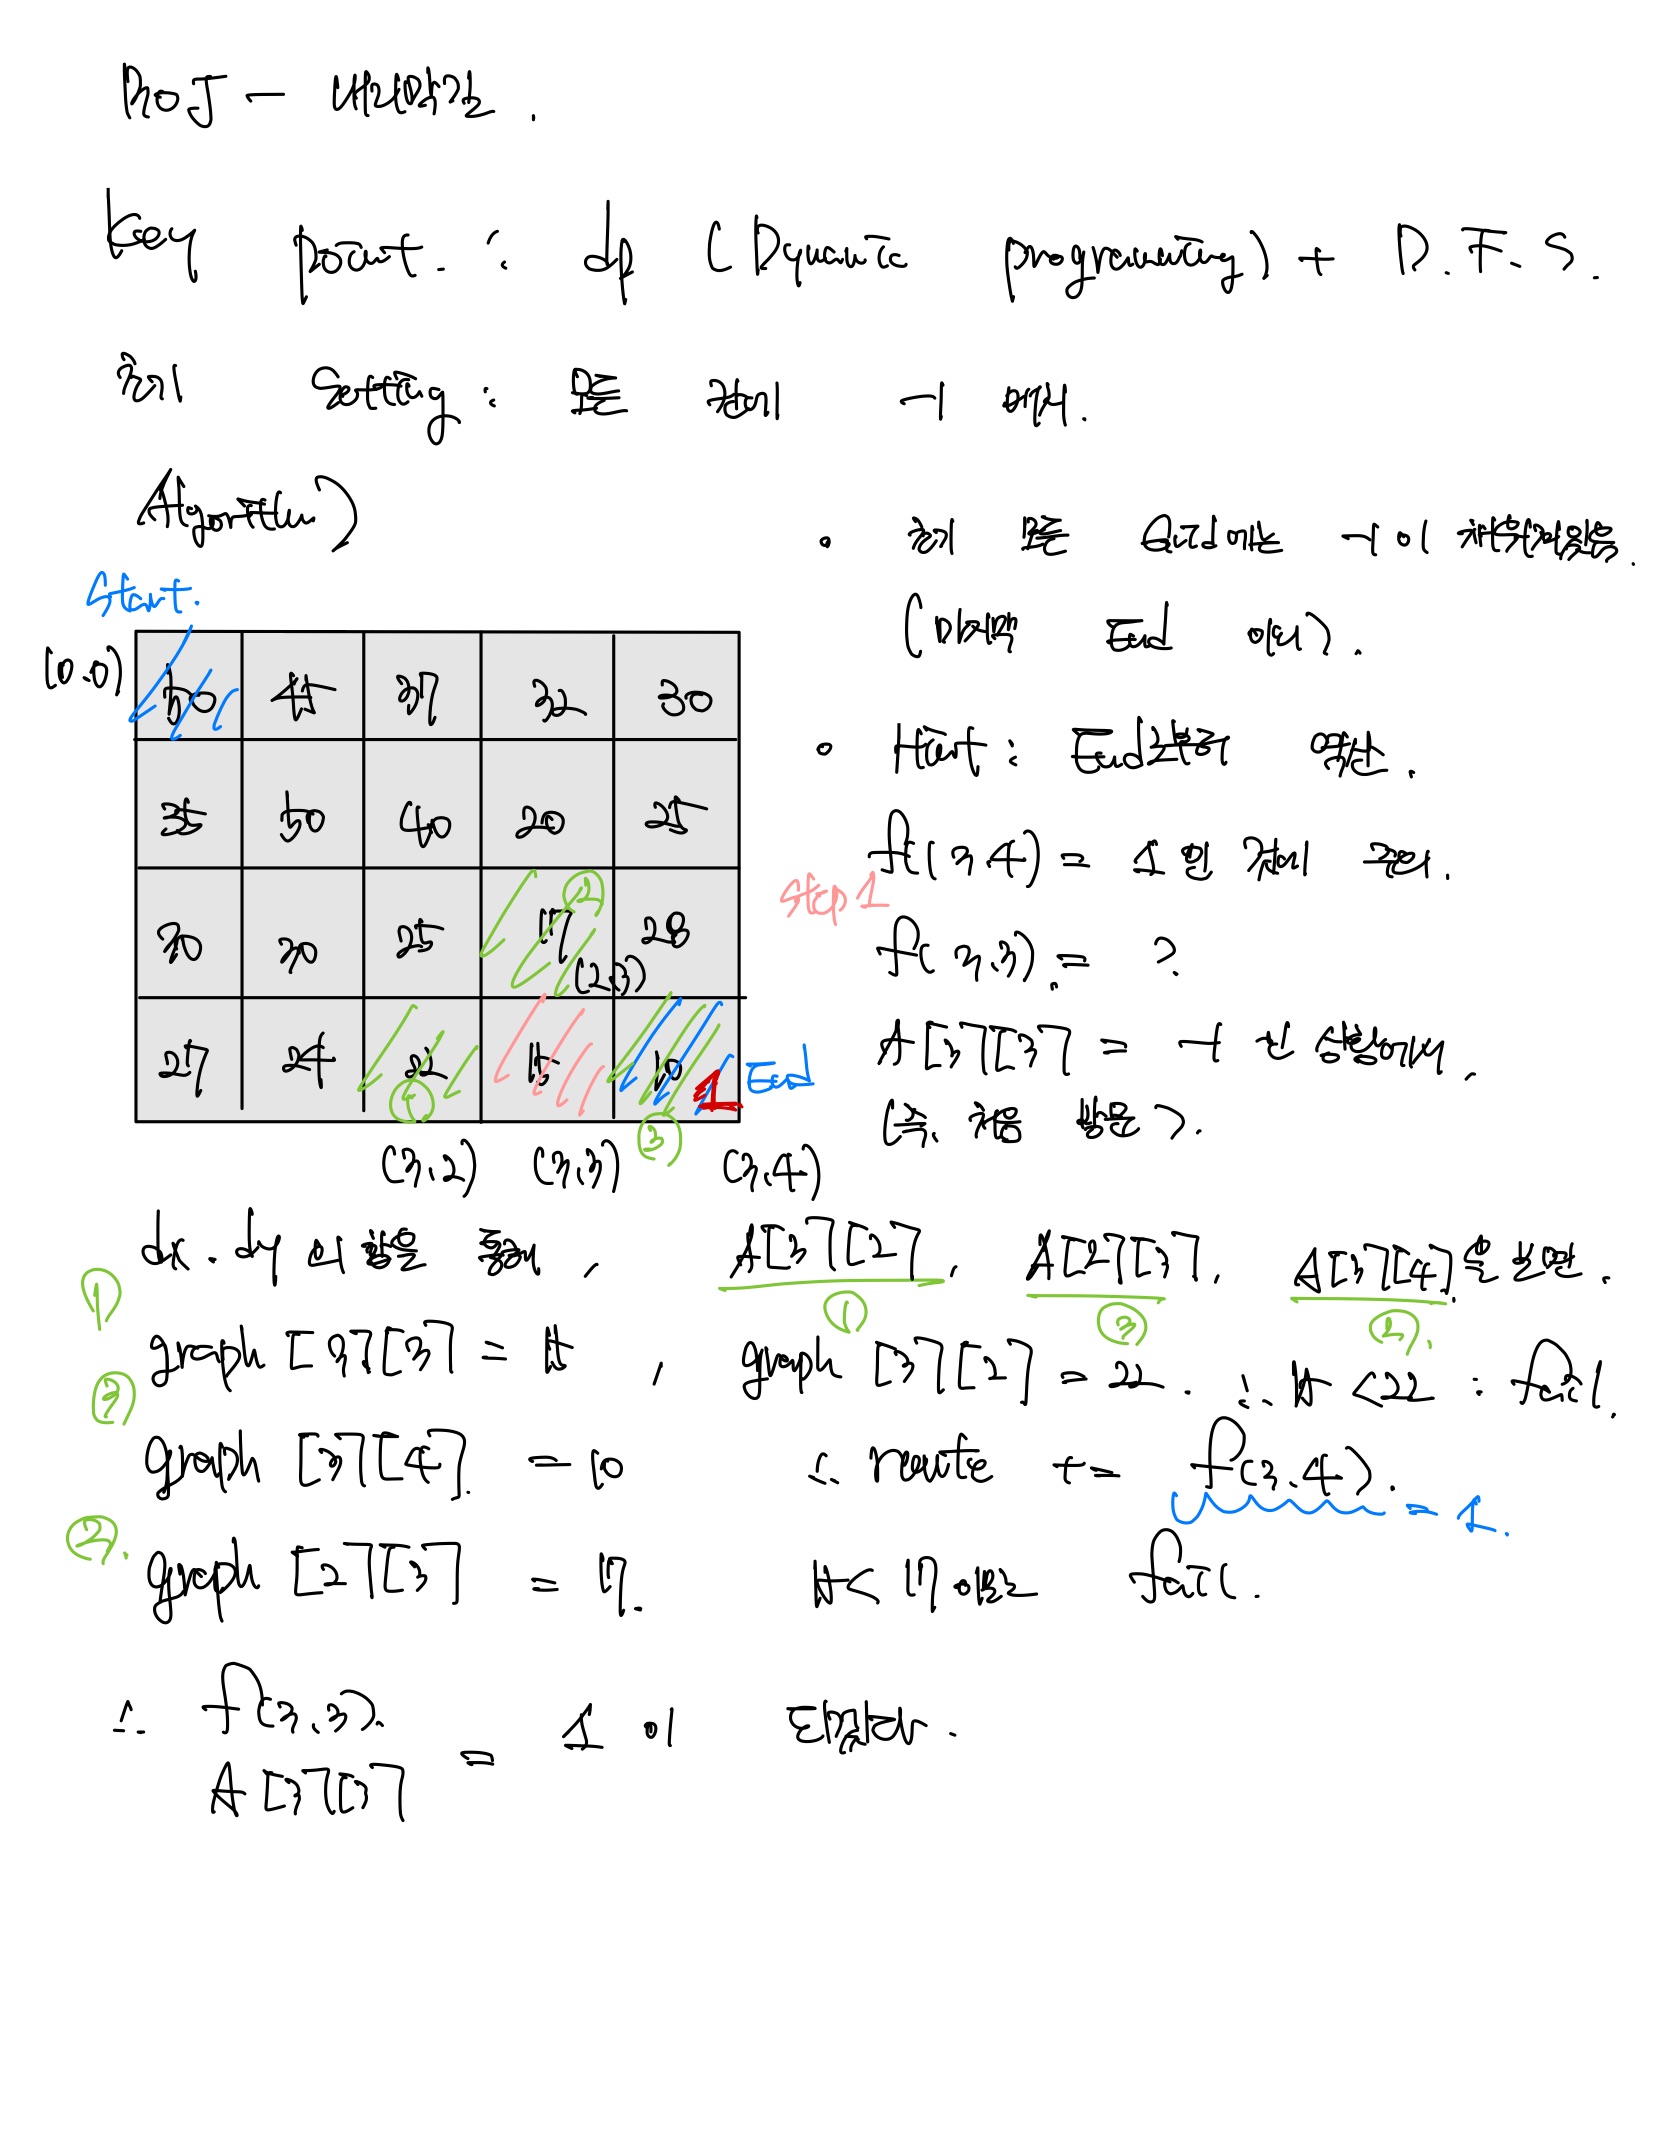 PROJ - 내리막길.
key point : dp (Dynamic programming) + D.F.S.
초기 Setting : 모든 값이 -1 에서.
Algorithm)
Start.
(0.0)
50 45 37 32 30
35 50 40 20 25
30 30 25 17 28
②
(2.3)
27 24 22 15 10
① 1 End
③
(3,2) (3,3) (3,4)
• 초기 모든 Grid에는 -1이 채워져있음.
(마지막 End 이외).
• Hint : End로부터 역산.
f(3,4) = 1인 값이 주어.
step1
f(3,3) = ?
A[3][3] = -1 인 상황에서,
(즉, 처음 방문).
dx. dy 의 합을 통해, A[3][2], A[2][3], A[3][4]을 보면.
① ③ ②.
① graph [3][3] = 15, graph [3][2] = 22. ∴ 15 <22 : fail.
③ graph [3][4] = 10 ∴ route += f(3.4).
= 1.
②. graph [2][3] = 17. 15< 17 이므로 fail.
∴ f(3,3). = 1 이 된다.
A [3][3]